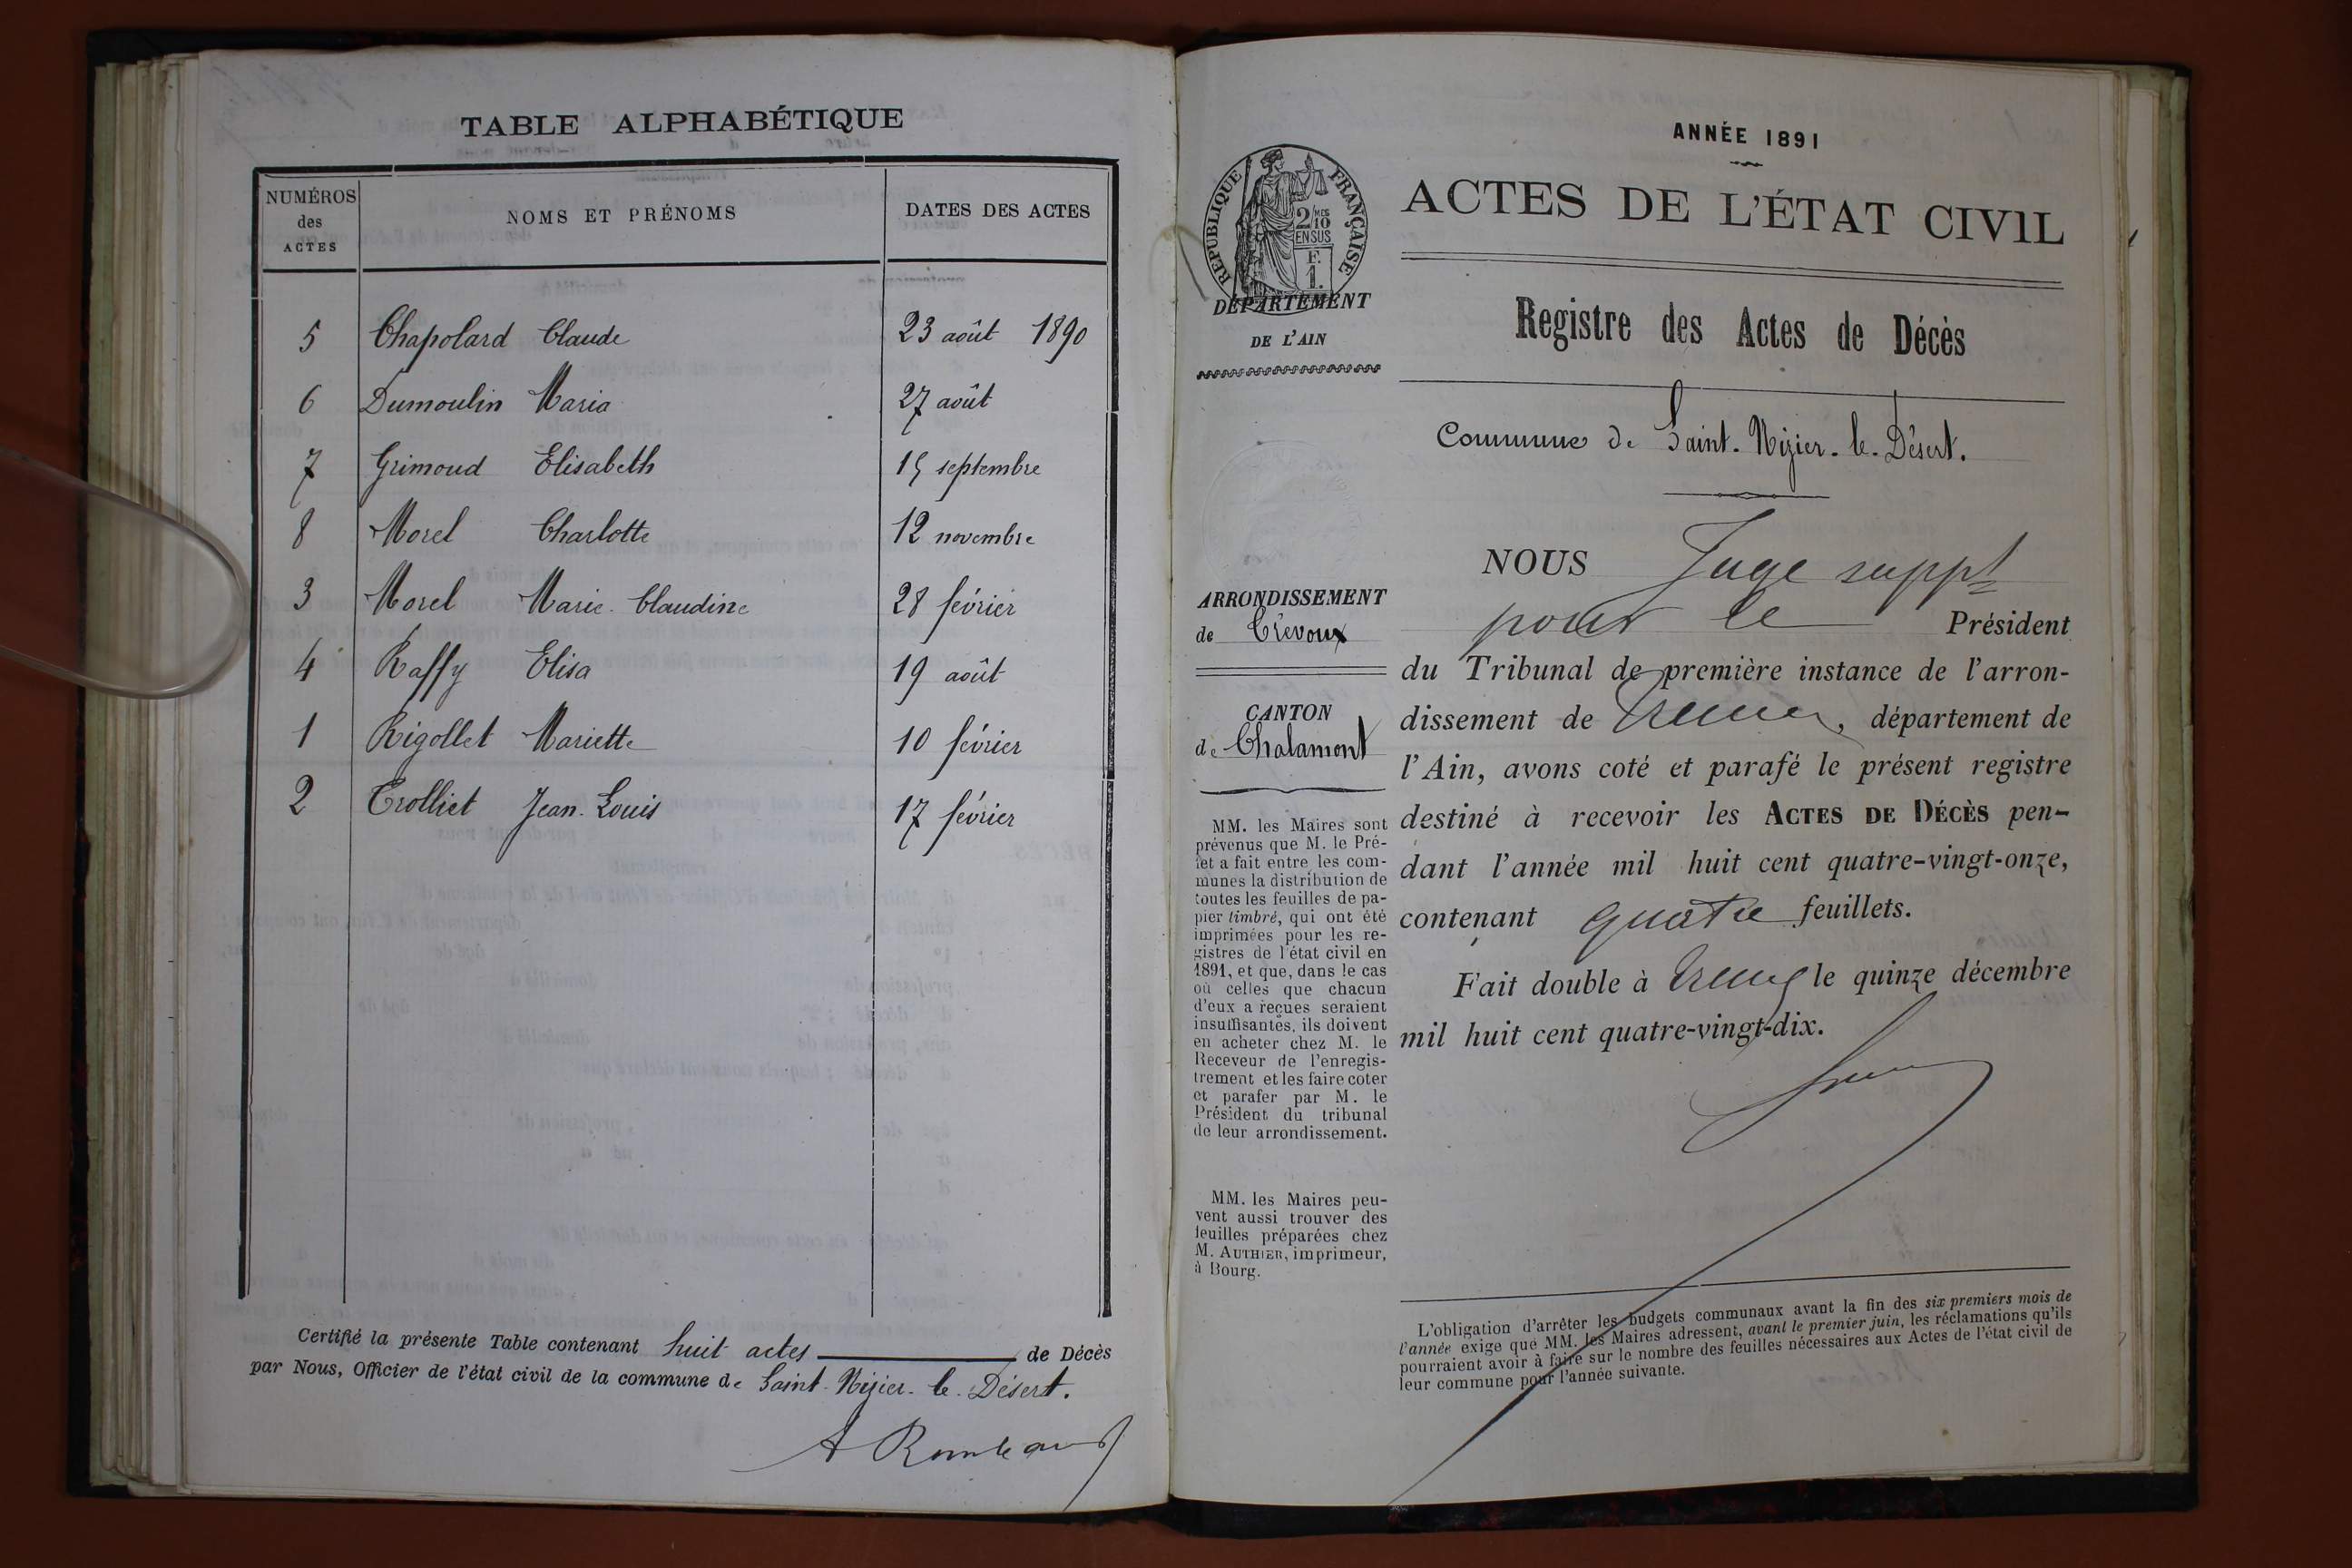 TABLE ALPHABÉTIQUE
NUMÉROS des ACTES
NOMS ET PRÉNOMS
DATES DES ACTES
5 Chapolard Claude 23 août 1890
6 Dumoulin Maria 27 août
7 Grimoud Elisabeth 15 septembre
8 Morel Charlotte 12 novembre
3 Morel Marie Claudine 28 février
4 Raffy Elisa 19 août
1 Rigollet Mariette 10 février
2 Trolliet Jean-Louis 17 février
Certifié la présente Table contenant huit actes de Décès
par Nous, Officier de l'état civil de la commune de Saint-Nizier-le-Désert.
ANNÉE 1891
ACTES DE L'ÉTAT CIVIL
Registre des Actes de Décès
Commune de Saint-Nizier-le-Désert.
RÉPUBLIQUE FRANÇAISE
2/10 MES
EN SUS
F.
1.
DÉPARTEMENT
DE L'AIN
ARRONDISSEMENT
de Trévoux
CANTON
de Chalamont
MM. les Maires sont
prévenus que M. le Pré-
fet a fait entre les com-
munes la distribution de
toutes les feuilles de pa-
pier timbré, qui ont été
imprimées pour les re-
gistres de l'état civil en
1891, et que, dans le cas
où celles que chacun
d'eux a reçues seraient
insuffisantes, ils doivent
en acheter chez M. le
Receveur de l'enregis-
trement et les faire coter
et parafer par M. le
Président du tribunal
de leur arrondissement.
MM. les Maires peu-
vent aussi trouver des
feuilles préparées chez
M. AUTHIER, imprimeur,
à Bourg.
NOUS Juge suppt
pour le Président
du Tribunal de première instance de l'arron-
dissement de Trévoux, département de
l'Ain, avons coté et parafé le présent registre
destiné à recevoir les ACTES DE DÉCÈS pen-
dant l'année mil huit cent quatre-vingt-onze,
contenant quatre feuillets.
Fait double à Trévoux le quinze décembre
mil huit cent quatre-vingt-dix.
L'obligation d'arrêter les budgets communaux avant la fin des six premiers mois de
l'année exige que MM. les Maires adressent, avant le premier juin, les réclamations qu'ils
pourraient avoir à faire sur le nombre des feuilles nécessaires aux Actes de l'état civil de
leur commune pour l'année suivante.